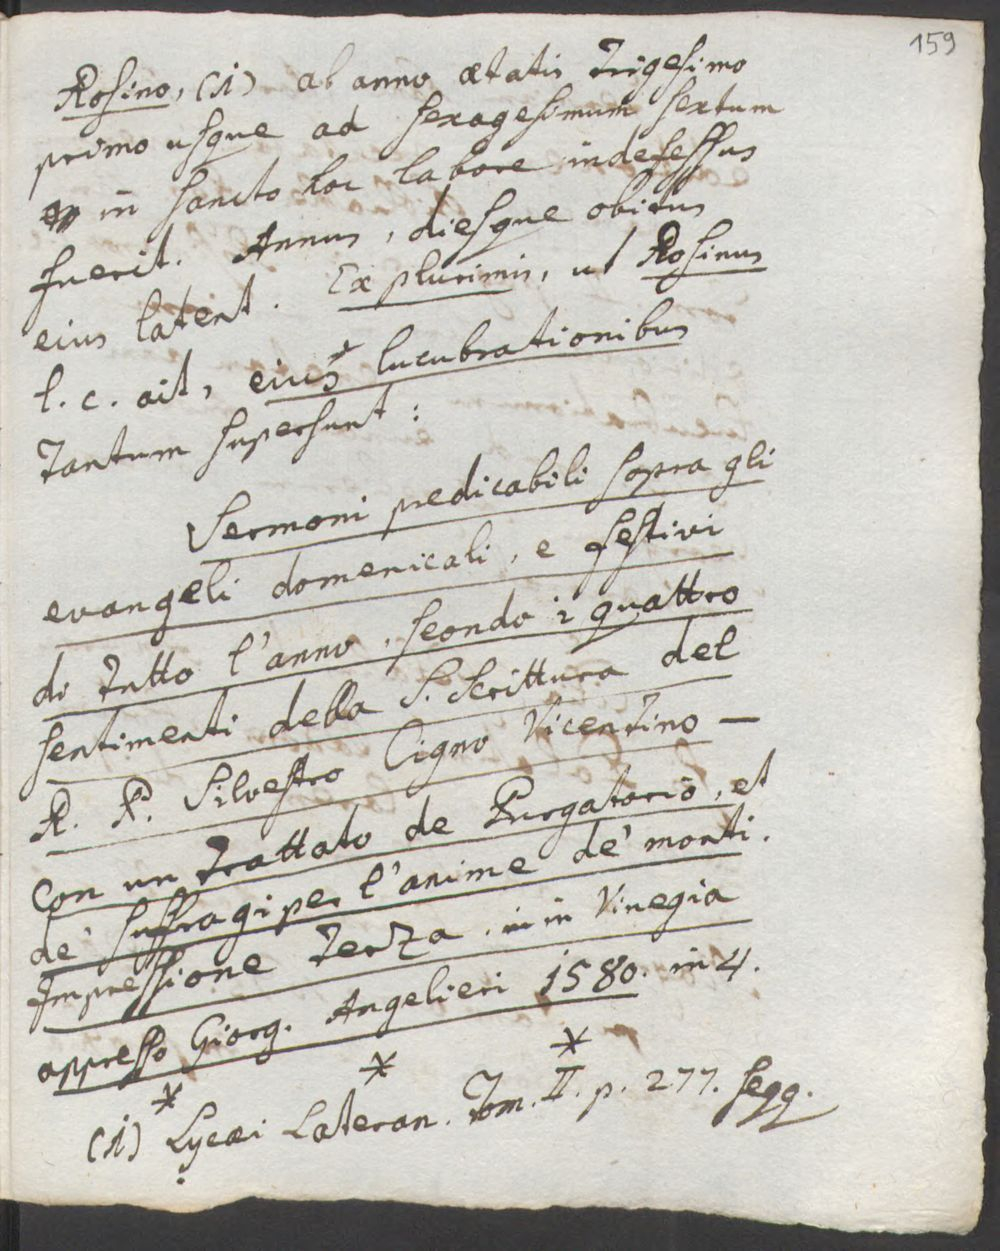 159
Rosino, (1) ab anno ætatis trigesimo
primo usque ad sexagesimum sextum
in sancto hoc labore indefessus
fuerit. Annus, diesque obitus
eius latent. Ex plurimis, ut Rosinus
l. c. ait, eius lucubrationibus
tantum supersunt:
Sermoni predicabili sopra gli
evangeli domenicali, e festivi
di tutto l'anno, secondo i quattro
sentimenti della S. Scrittura del
R. P. Silvestro Cigno Vicentino —
Con un trattato de Purgatorio, et
de' suffragi per l'anime de' morti.
Impressione terza, in in Vinegia
appresso Giorg. Angelieri 1580. in 4.
* * *
(1) Lycæi Lateran. Tom. II. p. 277. seqq.